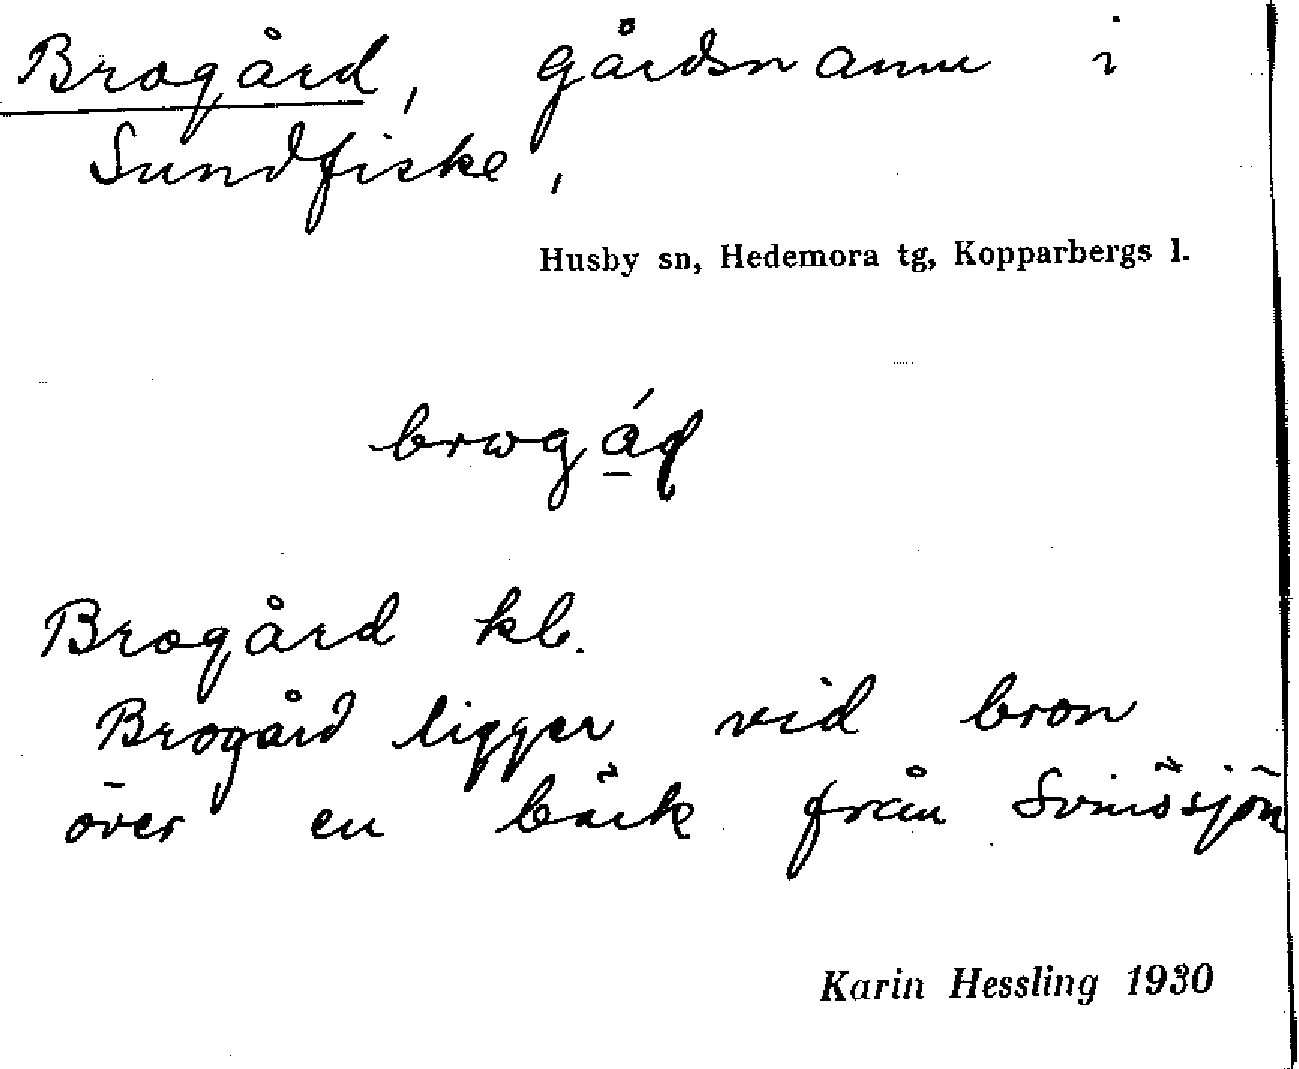 Brogård, gårdsnamn i
Sundfiske,
Husby sn, Hedemora tg, Kopparbergs l.
Brogård kb.
Brogård ligger vid bron
över en bäck från Svinösjön
Karin Hessling 1930